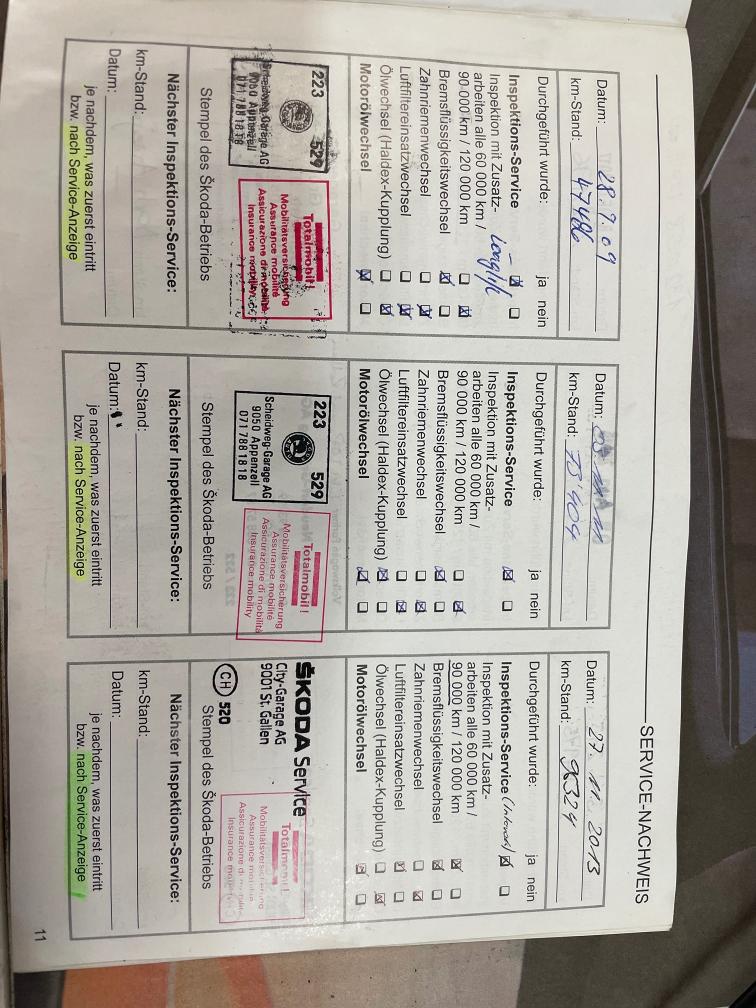 SERVICE-NACHWEIS
Datum: 28.9.09
km-Stand: 47486
Durchgeführt wurde: ja nein
Inspektions-Service
Inspektion mit Zusatz-
arbeiten alle 60 000 km /
90 000 km / 120 000 km
Bremsflüssigkeitswechsel
Zahnriemenwechsel
Luftfiltereinsatzwechsel
Ölwechsel (Haldex-Kupplung)
Motorölwechsel
223 529
Scheidweg-Garage AG
9050 Appenzell
071 788 18 18
Totalmobil!
Mobilitätsversicherung
Assurance mobilité
Assicurazione di mobilità
Insurance mobility
Stempel des Škoda-Betriebs
Nächster Inspektions-Service:
km-Stand:
Datum:
je nachdem, was zuerst eintritt
bzw. nach Service-Anzeige
Datum:
km-Stand: 73'404
Durchgeführt wurde: ja nein
Inspektions-Service
Inspektion mit Zusatz-
arbeiten alle 60 000 km /
90 000 km / 120 000 km
Bremsflüssigkeitswechsel
Zahnriemenwechsel
Luftfiltereinsatzwechsel
Ölwechsel (Haldex-Kupplung)
Motorölwechsel
223 529
Scheidweg-Garage AG
9050 Appenzell
071 788 18 18
Totalmobil!
Mobilitätsversicherung
Assurance mobilité
Assicurazione di mobilità
Insurance mobility
Stempel des Škoda-Betriebs
Nächster Inspektions-Service:
km-Stand:
Datum:
je nachdem, was zuerst eintritt
bzw. nach Service-Anzeige
Datum: 27. 11. 2013
km-Stand: 96324
Durchgeführt wurde: ja nein
Inspektions-Service
Inspektion mit Zusatz-
arbeiten alle 60 000 km /
90 000 km / 120 000 km
Bremsflüssigkeitswechsel
Zahnriemenwechsel
Luftfiltereinsatzwechsel
Ölwechsel (Haldex-Kupplung)
Motorölwechsel
ŠKODA Service
City-Garage AG
9001 St. Gallen
CH 520
Totalmobil!
Mobilitätsversicherung
Assurance mobilité
Assicurazione di mobilità
Insurance mobility
Stempel des Škoda-Betriebs
Nächster Inspektions-Service:
km-Stand:
Datum:
je nachdem, was zuerst eintritt
bzw. nach Service-Anzeige
11